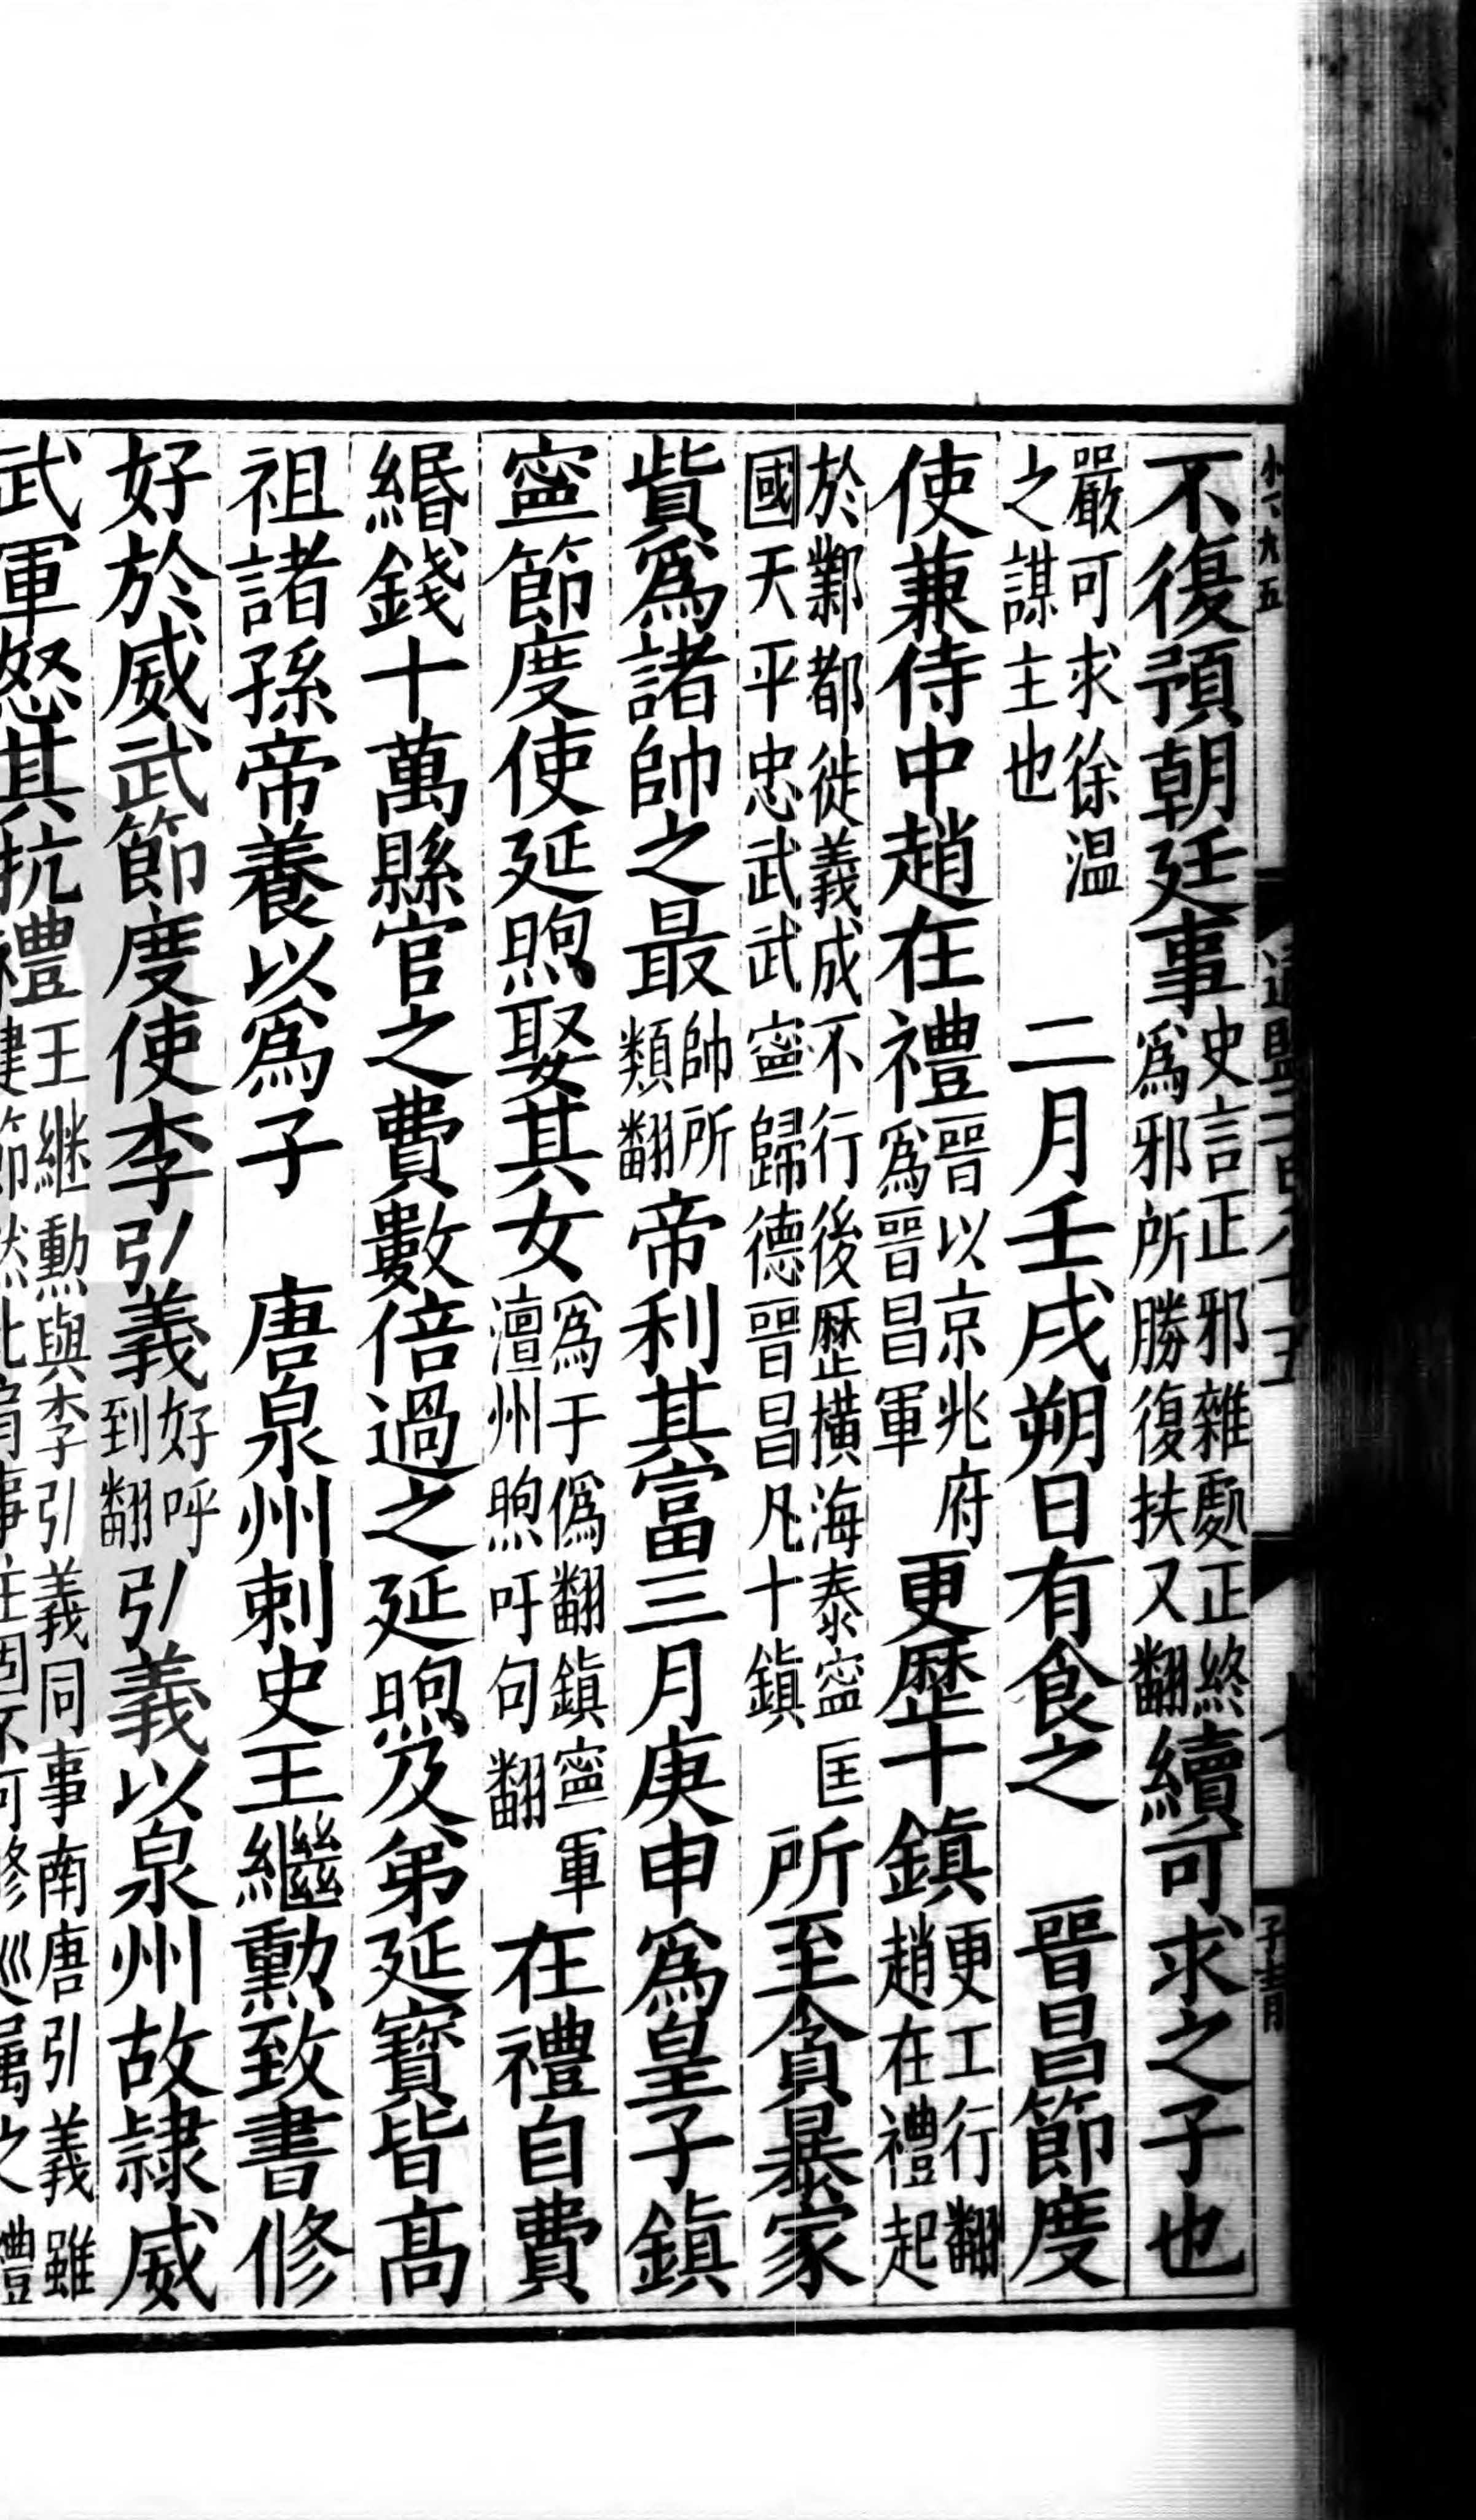 不復預朝廷事史言正邪雜處正終爲邪所勝復扶又翻續可求之子也
嚴可求徐温之謀主也二月壬戌朔日有食之 晉昌節度
使兼侍中趙在禮晉以京兆府爲晉昌軍更歷十鎮更工行翻趙在禮起
於鄴都徙義成不行後歷橫海泰寧匡國天平忠武武寧歸德晉昌凡十鎮所至貪暴家
貲爲諸帥之最帥所類翻帝利其富三月庚申爲皇子鎮
寧節度使延煦娶其女爲于僞翻鎮寧軍澶州煦吁句翻在禮自費
緡錢十萬縣官之費數倍過之延煦及弟延寶皆高
祖諸孫帝養以爲子 唐泉州刺史王繼勳致書修
好於威武節度使李引義好呼到翻引義以泉州故隸威
武軍怒其抗禮王継勳與李引義同事南唐引義雖